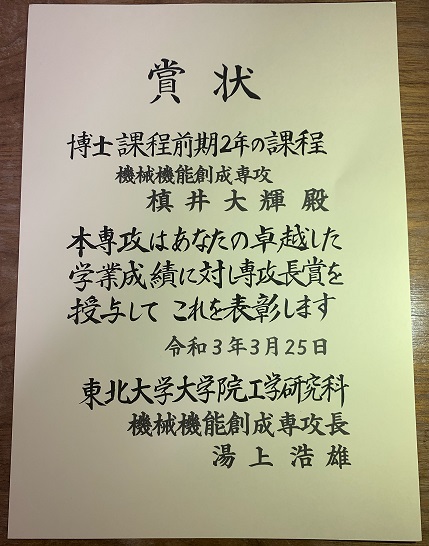 賞状
博士課程前期2年の課程
機械機能創成専攻
槙井大輝殿
本専攻はあなたの卓越した
学業成績に対し専攻長賞を
授与してこれを表彰します
令和3年3月25日
東北大学大学院工学研究科
機械機能創成専攻長
湯上浩雄